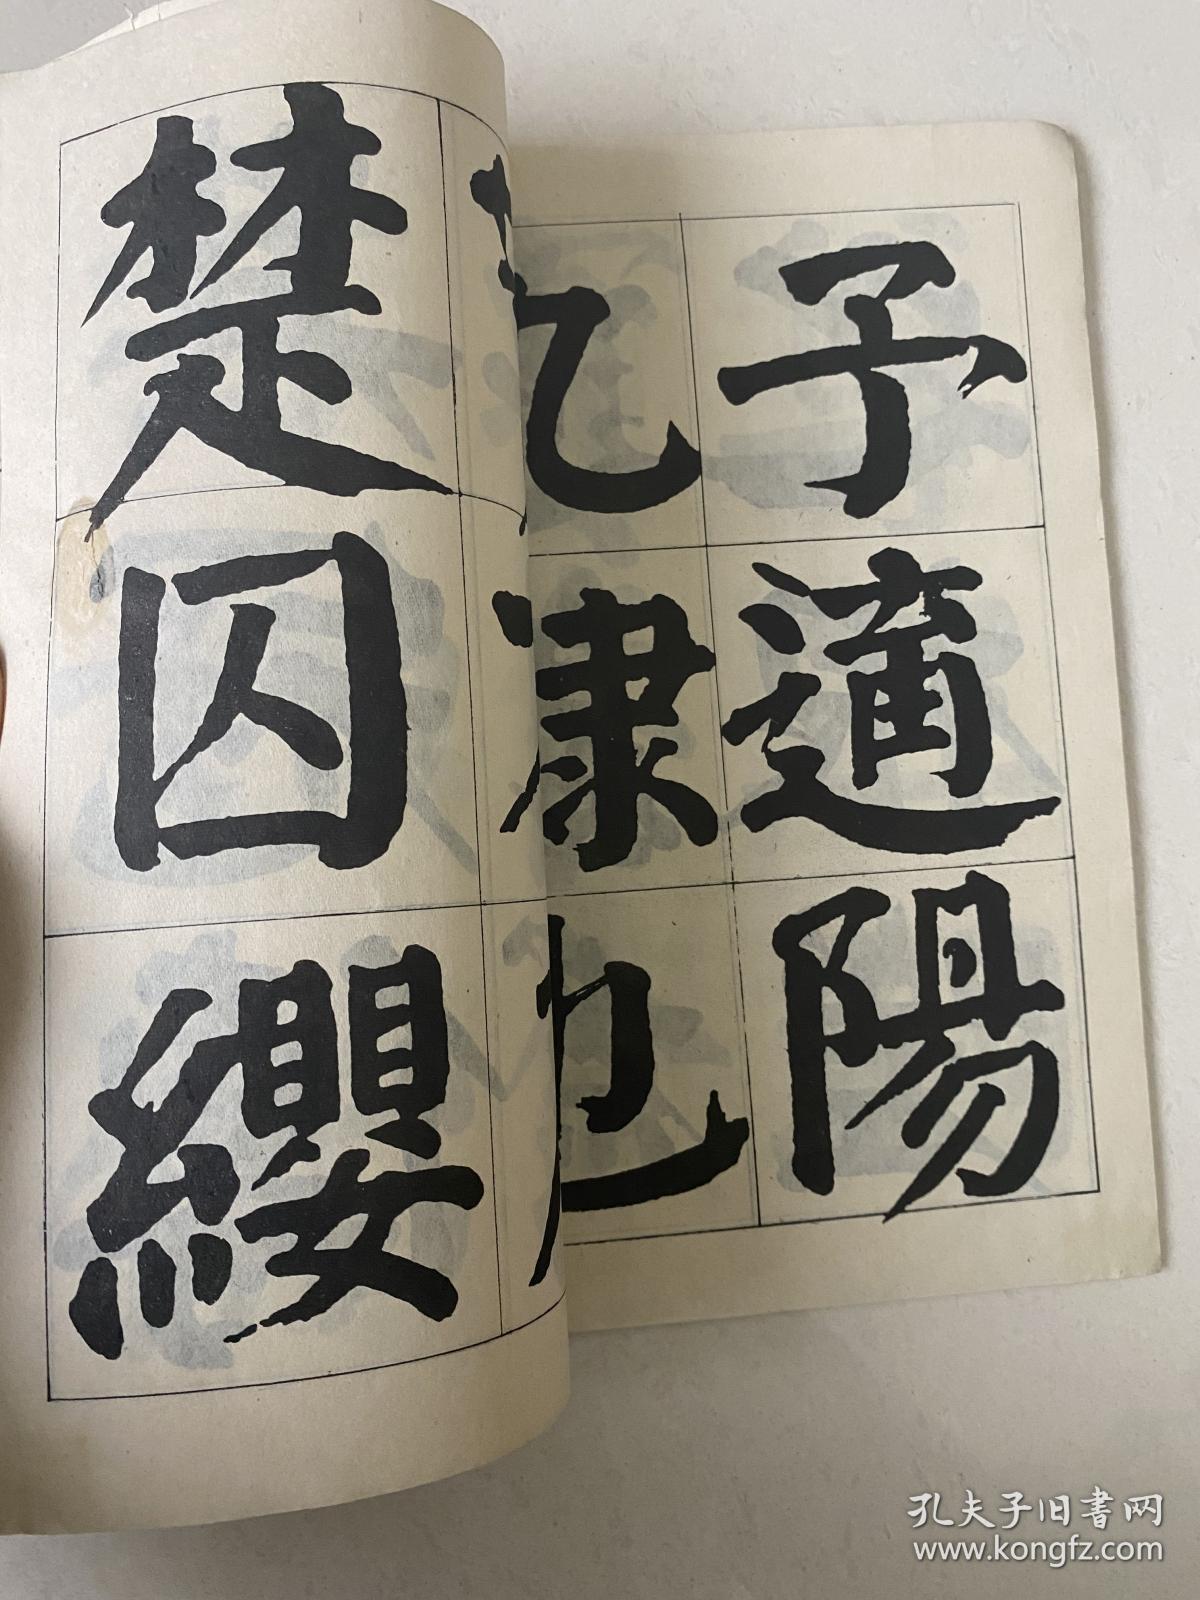 子適陽
也
楚囚纓
孔夫子旧書网
www.kongfz.com